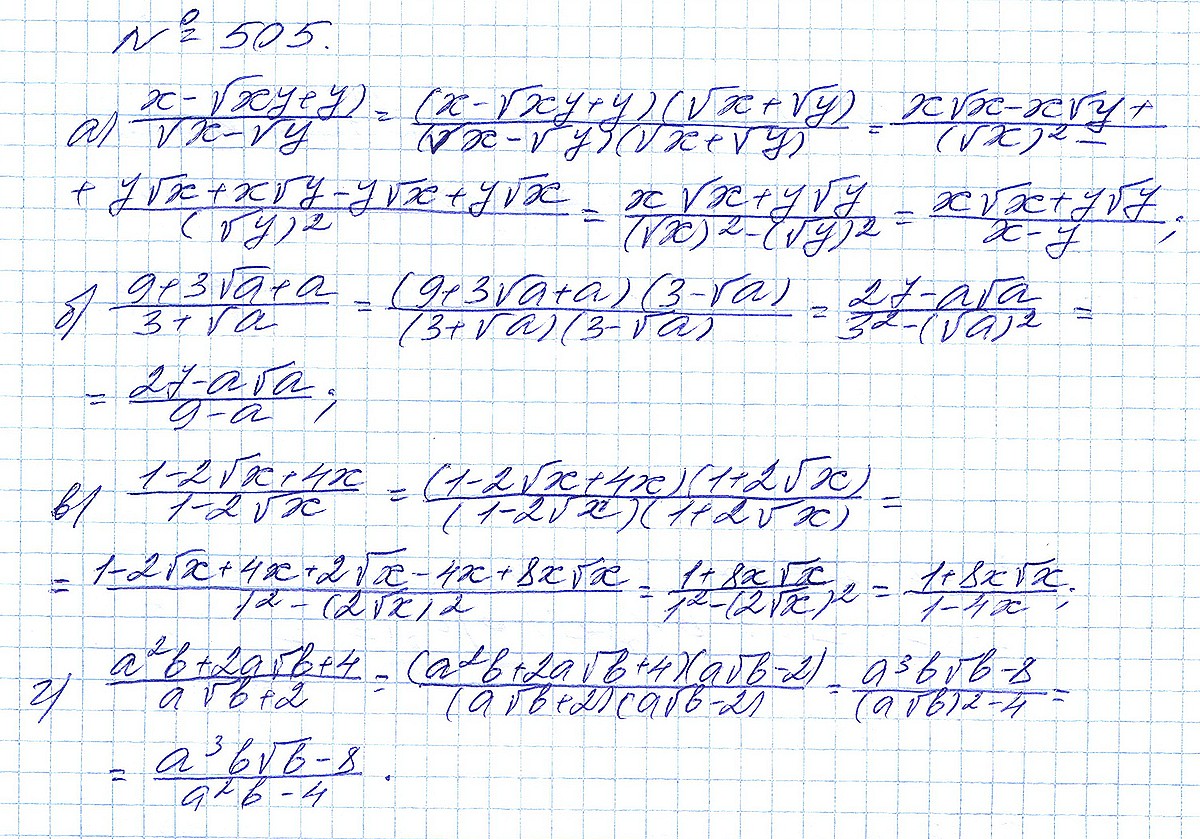 № 505.
а) (x-√xy+y)/(√x-√y) = ((x-√xy+y)(√x+√y))/((√x-√y)(√x+√y)) = (x√x-x√y+)/((√x)²-
(+y√x+x√y-y√x+y√x)/((√y)²) = (x√x+y√y)/((√x)²-(√y)²) = (x√x+y√y)/(x-y);
б) (9+3√a+a)/(3+√a) = ((9+3√a+a)(3-√a))/((3+√a)(3-√a)) = (27-a√a)/(3²-(√a)²) =
= (27-a√a)/(9-a);
в) (1-2√x+4x)/(1-2√x) = ((1-2√x+4x)(1+2√x))/((1-2√x)(1+2√x)) =
= (1-2√x+4x+2√x-4x+8x√x)/(1²-(2√x)²) = (1+8x√x)/(1²-(2√x)²) = (1+8x√x)/(1-4x);
г) (a²b+2a√b+4)/(a√b+2) = ((a²b+2a√b+4)(a√b-2))/((a√b+2)(a√b-2)) = (a³b√b-8)/((a√b)²-4) =
= (a³b√b-8)/(a²b-4).